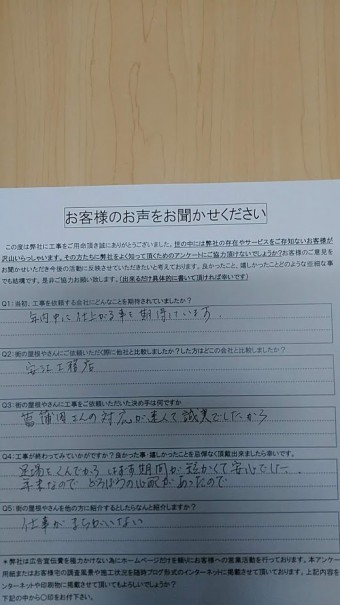 お客様のお声をお聞かせください
この度は弊社に工事をご用命頂き誠にありがとうございました。世の中には弊社の存在やサービスをご存知ないお客様が
沢山いらっしゃいます。その方たちに弊社をよく知って頂くためのアンケートにご協力頂けないでしょうか?お客様のご意見を
お聞かせいただき今後の活動に反映させていただきたいと考えております。良かったこと、嬉しかったことどのような些細な事
でも結構です。是非ご協力お願い致します。(出来るだけ具体的に書いて頂ければ幸いです)
Q1:当初、工事を依頼する会社にどんなことを期待されていましたか?
年内中に仕上がる事を期待しています。
Q2:街の屋根やさんにご依頼いただく際に他社と比較しましたか?した方はどこの会社と比較しましたか?
工務店
Q3:街の屋根やさんに工事をご依頼いただいた決め手は何ですか
菖蒲田さんの対応が速くて誠実でしたから
Q4:工事が終わってみていかがですか?良かった事・嬉しかったことを忌憚なく頂戴出来ましたら幸いです。
足場をくんでから はずす期間が短かくて安心でした.
年末なので どろぼうの心配があったので
Q5:街の屋根やさんを他の方に紹介するとしたらなんと紹介しますか?
仕事がまちがいない
*弊社は広告宣伝費を極力かけない為にホームページだけを頼りにお客様への営業活動を行っております。本アンケー
用紙またはお客様宅の調査風景や施工状況を随時ブログ形式のインターネットに掲載させて頂いております。上記内容を
ンターネットや印刷物に掲載させて頂いてもよろしいでしょうか?
下記の中から○印をお付け下さい。